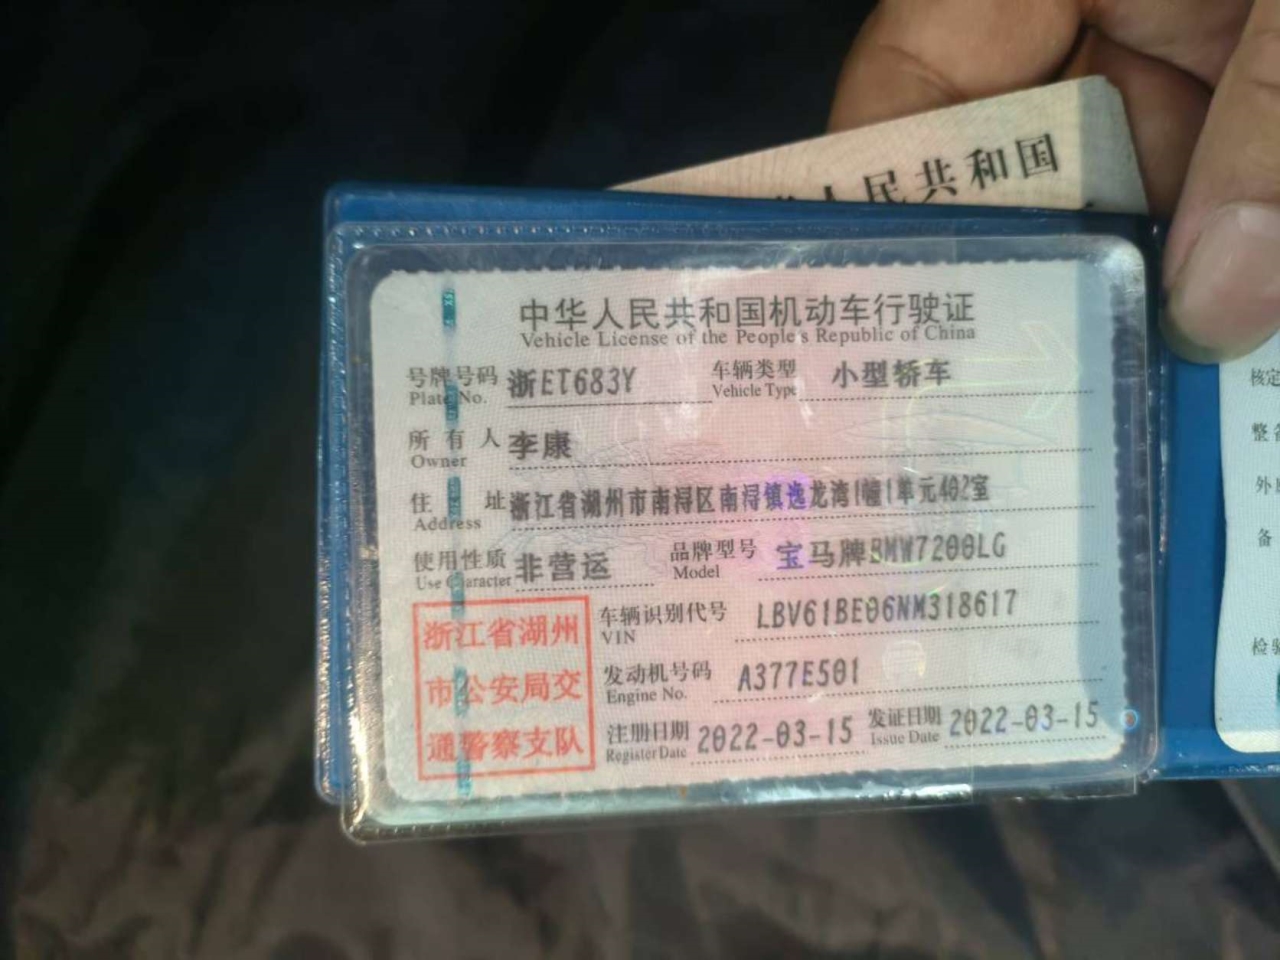 人民共和国
中华人民共和国机动车行驶证
Vehicle License of the People's Republic of China
号牌号码 浙ET683Y 车辆类型 小型轿车
Plate No. Vehicle Type
所有人 李康
Owner
住址 浙江省湖州市南浔区南浔镇逸龙湾1幢1单元402室
Address
使用性质 非营运 品牌型号 宝马牌BMW7200LG
Use Character Model
浙江省湖州
市公安局交
通警察支队
车辆识别代号 LBV61BE06NM318617
VIN
发动机号码 A377E501
Engine No.
注册日期 2022-03-15 发证日期 2022-03-15
Register Date Issue Date
核定
整备
外
备
检验